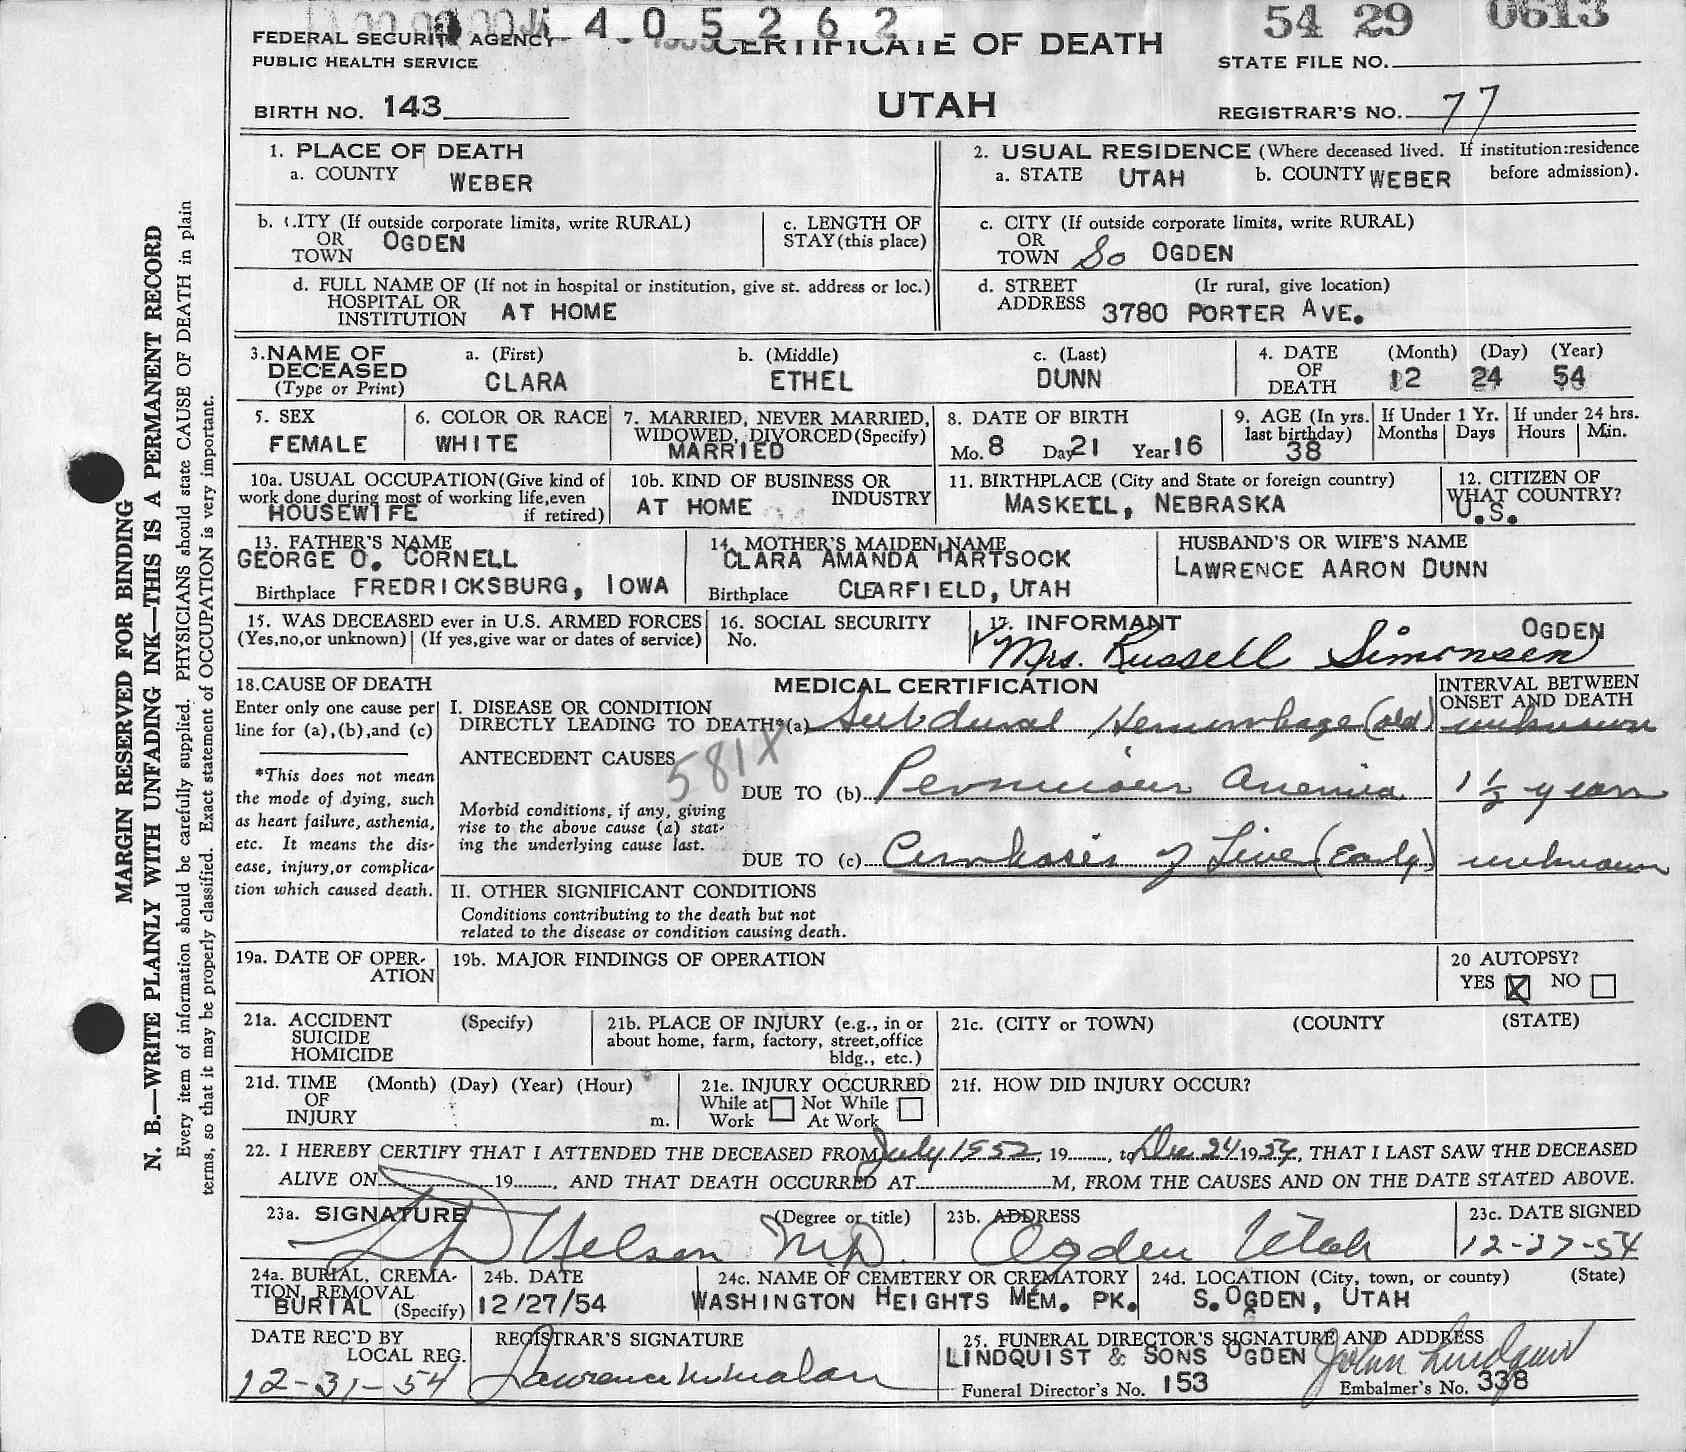 1405262
54 29 0613
FEDERAL SECURITY AGENCY
PUBLIC HEALTH SERVICE
CERTIFICATE OF DEATH
STATE FILE NO.
BIRTH NO. 143
UTAH
REGISTRAR'S NO. 77
1. PLACE OF DEATH
a. COUNTY WEBER
2. USUAL RESIDENCE (Where deceased lived. If institution:residence before admission).
a. STATE UTAH b. COUNTY WEBER
b. CITY (If outside corporate limits, write RURAL)
OR TOWN OGDEN
c. LENGTH OF STAY (this place)
c. CITY (If outside corporate limits, write RURAL)
OR TOWN So OGDEN
d. FULL NAME OF (If not in hospital or institution, give st. address or loc.)
HOSPITAL OR INSTITUTION AT HOME
d. STREET ADDRESS (Ir rural, give location)
3780 PORTER AVE.
3. NAME OF DECEASED (Type or Print)
a. (First) CLARA
b. (Middle) ETHEL
c. (Last) DUNN
4. DATE OF DEATH (Month) (Day) (Year)
12 24 54
5. SEX FEMALE
6. COLOR OR RACE WHITE
7. MARRIED, NEVER MARRIED, WIDOWED, DIVORCED (Specify) MARRIED
8. DATE OF BIRTH
Mo. 8 Day 21 Year 16
9. AGE (In yrs. last birthday) 38
If Under 1 Yr. Months Days
If under 24 hrs. Hours Min.
10a. USUAL OCCUPATION (Give kind of work done during most of working life, even if retired) HOUSEWIFE
10b. KIND OF BUSINESS OR INDUSTRY AT HOME
11. BIRTHPLACE (City and State or foreign country)
MASKELL, NEBRASKA
12. CITIZEN OF WHAT COUNTRY? U.S.
13. FATHER'S NAME
GEORGE O. CORNELL
Birthplace FREDRICKSBURG, IOWA
14. MOTHER'S MAIDEN NAME
CLARA AMANDA HARTSOCK
Birthplace CLEARFIELD, UTAH
HUSBAND'S OR WIFE'S NAME
LAWRENCE AARON DUNN
15. WAS DECEASED ever in U.S. ARMED FORCES
(Yes,no,or unknown) (If yes,give war or dates of service)
16. SOCIAL SECURITY No.
17. INFORMANT OGDEN
Mrs. Russell Simonsen
18. CAUSE OF DEATH
Enter only one cause per line for (a), (b), and (c)
*This does not mean the mode of dying, such as heart failure, asthenia, etc. It means the disease, injury, or complication which caused death.
MEDICAL CERTIFICATION
INTERVAL BETWEEN ONSET AND DEATH
I. DISEASE OR CONDITION
DIRECTLY LEADING TO DEATH*(a) Subdural Hemorrhage (old) unknown
ANTECEDENT CAUSES
581X
Morbid conditions, if any, giving rise to the above cause (a) stating the underlying cause last.
DUE TO (b) Pernicious Anemia 1½ years
DUE TO (c) Cirrhosis of Liver (Early) unknown
II. OTHER SIGNIFICANT CONDITIONS
Conditions contributing to the death but not related to the disease or condition causing death.
19a. DATE OF OPERATION
19b. MAJOR FINDINGS OF OPERATION
20 AUTOPSY?
YES X NO
21a. ACCIDENT SUICIDE HOMICIDE (Specify)
21b. PLACE OF INJURY (e.g., in or about home, farm, factory, street,office bldg., etc.)
21c. (CITY or TOWN) (COUNTY (STATE)
21d. TIME OF INJURY (Month) (Day) (Year) (Hour) m.
21e. INJURY OCCURRED
While at Work Not While At Work
21f. HOW DID INJURY OCCUR?
22. I HEREBY CERTIFY THAT I ATTENDED THE DECEASED FROM July 1952, 19...., to Dec. 24 1954, THAT I LAST SAW THE DECEASED
ALIVE ON 19...., AND THAT DEATH OCCURRED AT M, FROM THE CAUSES AND ON THE DATE STATED ABOVE.
23a. SIGNATURE (Degree or title)
Nelson M.D.
23b. ADDRESS
Ogden Utah
23c. DATE SIGNED
12-27-54
24a. BURIAL, CREMATION, REMOVAL (Specify) BURIAL
24b. DATE 12/27/54
24c. NAME OF CEMETERY OR CREMATORY
WASHINGTON HEIGHTS MEM. PK.
24d. LOCATION (City, town, or county) (State)
S. OGDEN, UTAH
DATE REC'D BY LOCAL REG.
12-31-54
REGISTRAR'S SIGNATURE
Lawrence M Malan
25. FUNERAL DIRECTOR'S SIGNATURE AND ADDRESS
LINDQUIST & SONS OGDEN John Lindquist
Funeral Director's No. 153
Embalmer's No. 338
MARGIN RESERVED FOR BINDING
N. B.—WRITE PLAINLY WITH UNFADING INK—THIS IS A PERMANENT RECORD
Every item of information should be carefully supplied. PHYSICIANS should state CAUSE OF DEATH in plain
terms, so that it may be properly classified. Exact statement of OCCUPATION is very important.